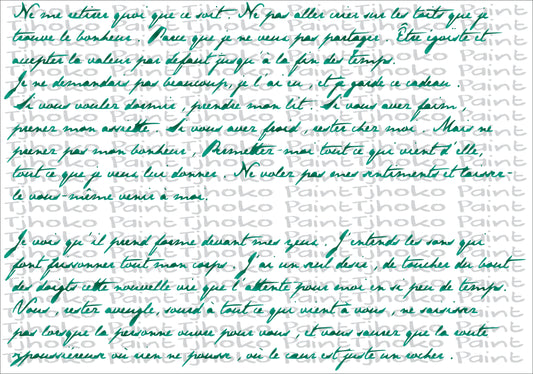 Ne me retirer quoi que ce soit. Ne pas aller crier sur les toits que je
trouve le bonheur. Parce que je ne veux pas partager. Être égoïste et
accepter la valeur par défaut jusqu'à la fin des temps.
Je ne demandais pas beaucoup, je l'ai eu, et je garde ce cadeau.
Si vous voulez dormir, prendre mon lit; Si vous avez faim,
prenez mon assiette. Si vous avez froid, rester chez moi. Mais ne
prenez pas mon bonheur, Permettez-moi tout ce qui vient d'elle,
tout ce que je veux lui donner. Ne volez pas mes sentiments et laisser-
le vous-même venir à moi.
Je vois qu'il prend forme devant mes yeux. J'entends les sons qui
font frissonner tout mon corps. J'ai un seul désir, de toucher du bout
des doigts cette nouvelle vie que l'attente pour moi en si peu de temps.
Vous, rester aveugle, sourd à tout ce qui vient à vous, ne saisissez
pas lorsque la personne ouvre pour vous; et vous saurez que la route
poussiéreuse où rien ne pousse, où le cœur est juste un rocher.
Tjhoko Paint